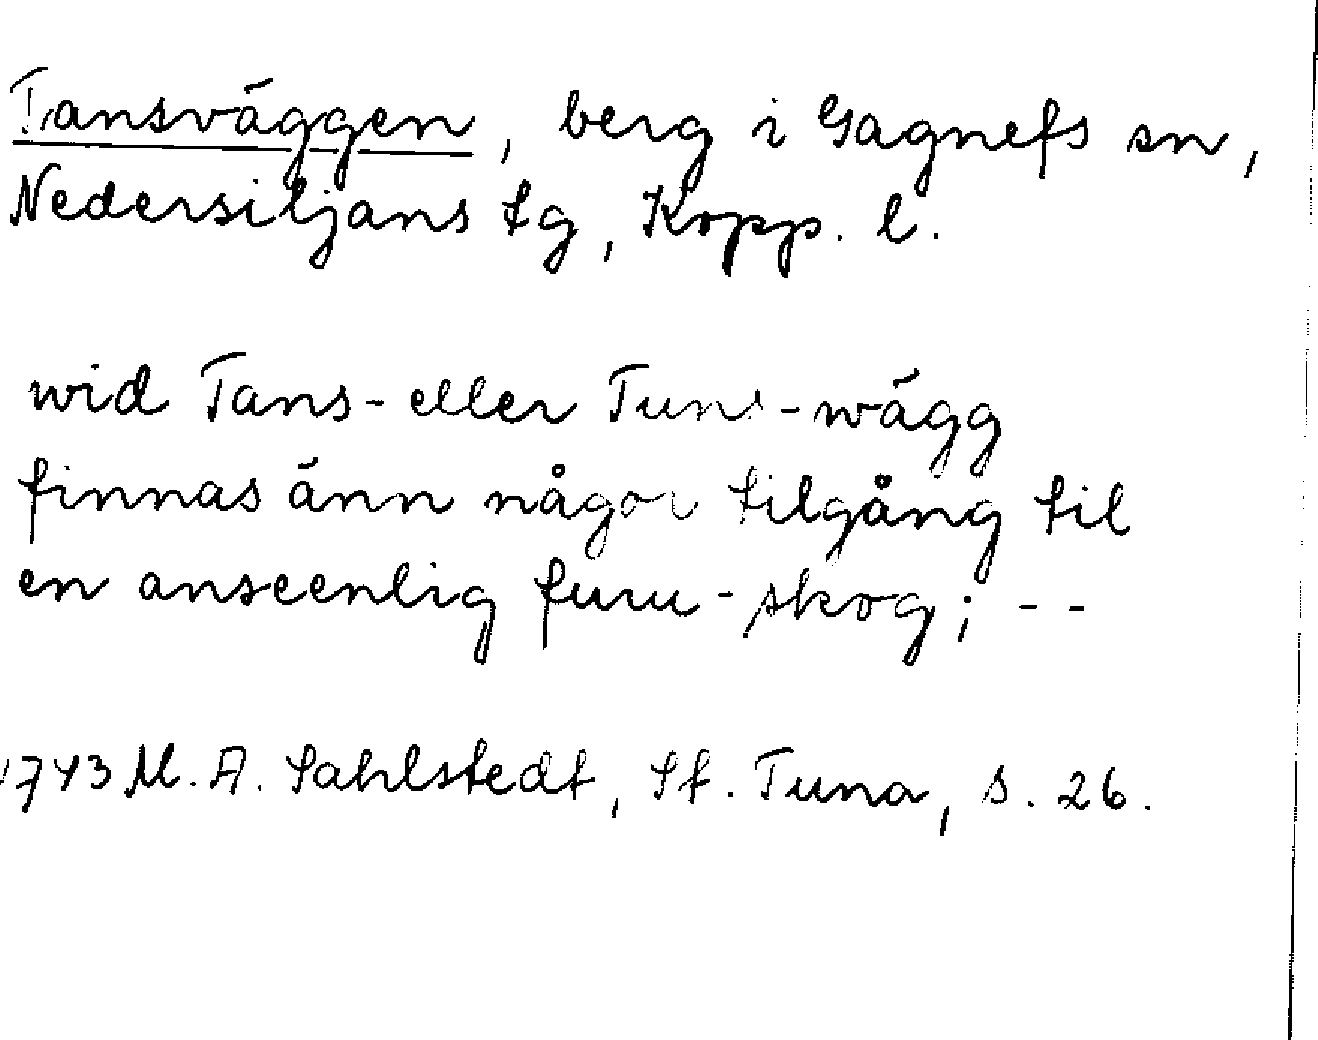 Tansväggen, berg i Gagnefs sn,
Nedersiljans tg, Kopp. l.
wid Tans- eller Tuns-wägg
finnas änn någor tilgång til
en anseenlig furu-skog; - -
1743 M. A. Sahlstedt, St. Tuna, s. 26.